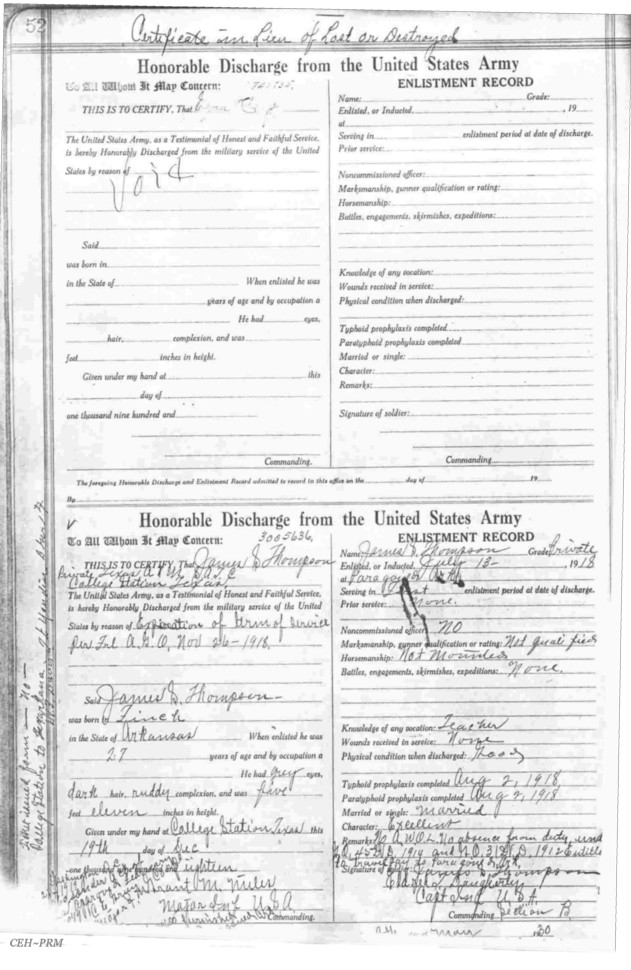 52
Certificate in Lieu of Lost or Destroyed
Honorable Discharge from the United States Army
To All Whom It May Concern:
THIS IS TO CERTIFY, That
The United States Army, as a Testimonial of Honest and Faithful Service,
is hereby Honorably Discharged from the military service of the United
States by reason of
Void
Said
was born in
in the State of When enlisted he was
years of age and by occupation a
He had eyes,
hair, complexion, and was
feet inches in height.
Given under my hand at this
day of
one thousand nine hundred and
Commanding.
ENLISTMENT RECORD
Name: Grade:
Enlisted, or Inducted, , 19
at
Serving in enlistment period at date of discharge.
Prior service:
Noncommissioned officer:
Marksmanship, gunner qualification or rating:
Horsemanship:
Battles, engagements, skirmishes, expeditions:
Knowledge of any vocation:
Wounds received in service:
Physical condition when discharged:
Typhoid prophylaxis completed
Paratyphoid prophylaxis completed
Married or single:
Character:
Remarks:
Signature of soldier:
Commanding
The foregoing Honorable Discharge and Enlistment Record admitted to record in this office on the day of 19
By
Honorable Discharge from the United States Army
To All Whom It May Concern: 3005636
THIS IS TO CERTIFY, That James S. Thompson
Private Texas A & M
College Station Texas
The United States Army, as a Testimonial of Honest and Faithful Service,
is hereby Honorably Discharged from the military service of the United
States by reason of Expiration of term of Service
Per A.G.O. Nov 26-1918
Said James S. Thompson
was born in Finch
in the State of Arkansas When enlisted he was
27 years of age and by occupation a
He had grey eyes,
dark hair, ruddy complexion, and was five
feet eleven inches in height.
Given under my hand at College Station Texas this
19th day of Dec
one thousand nine hundred and eighteen
Grant M. Miles
Major Inf U.S.A
Commanding.
ENLISTMENT RECORD
Name: James S. Thompson Grade: Private
Enlisted, or Inducted, July 13- 1918
at Paragould Ark
Serving in First enlistment period at date of discharge.
Prior service: None.
Noncommissioned officer: NO
Marksmanship, gunner qualification or rating: Not qualified
Horsemanship: Not Mounted
Battles, engagements, skirmishes, expeditions: None.
Knowledge of any vocation: Teacher
Wounds received in service: None
Physical condition when discharged: Good
Typhoid prophylaxis completed Aug 2, 1918
Paratyphoid prophylaxis completed Aug 2, 1918
Married or single: Married
Character: Excellent
Remarks: No A.W.O.L. No absence from duty under
G.O. 45 W.D. 1914 and G.O. 31 W.D. 1912 Entitled
to travel pay to Paragould Ark
Signature of soldier: James S. Thompson
Charles Daugherty
Capt Inf U.S.A.
Commanding Section B
CEH~PRM